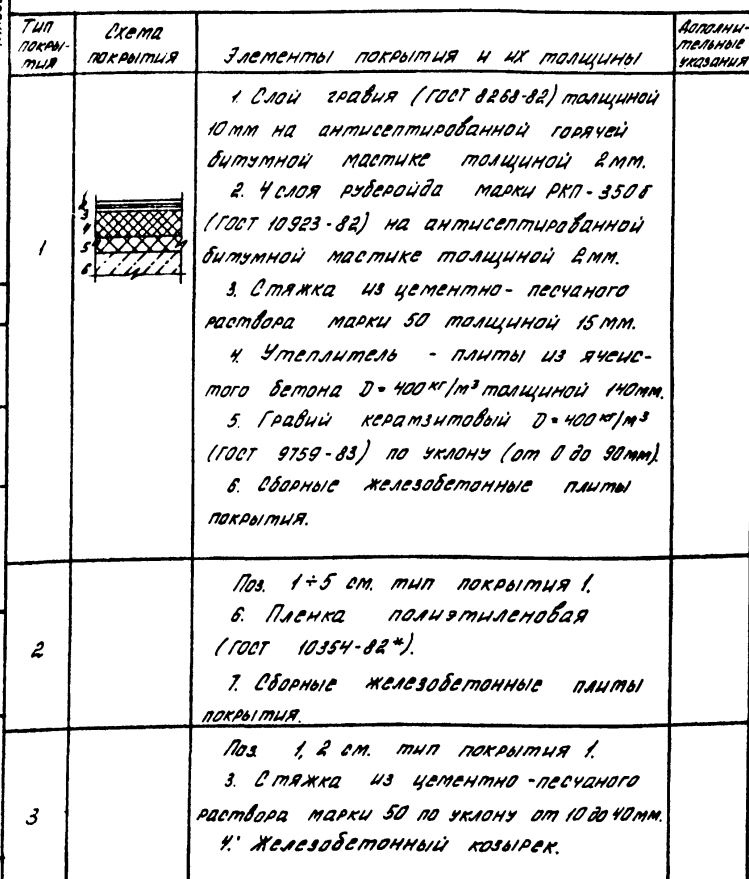 Тип покры-тия
Схема покрытия
Элементы покрытия и их толщины
Дополни-тельные указания
1
1
2
3
4
5
6
1. Слой гравия (ГОСТ 8268-82) толщиной
10мм на антисептированной горячей
битумной мастике толщиной 2мм.
2. 4 слоя рубероида марки РКП-350б
(ГОСТ 10923-82) на антисептированной
битумной мастике толщиной 2мм.
3. Стяжка из цементно-песчаного
раствора марки 50 толщиной 15мм.
4. Утеплитель - плиты из ячеис-
того бетона D=400 кг/м³ толщиной 140мм.
5. Гравий керамзитовый D=400 кг/м³
(ГОСТ 9759-83) по уклону (от 0 до 90мм).
6. Сборные железобетонные плиты
покрытия.
2
Поз. 1÷5 см. тип покрытия 1.
6. Пленка полиэтиленовая
(ГОСТ 10354-82*).
7. Сборные железобетонные плиты
покрытия.
3
Поз. 1, 2 см. тип покрытия 1.
3. Стяжка из цементно-песчаного
раствора марки 50 по уклону от 10 до 40мм.
4. Железобетонный козырек.